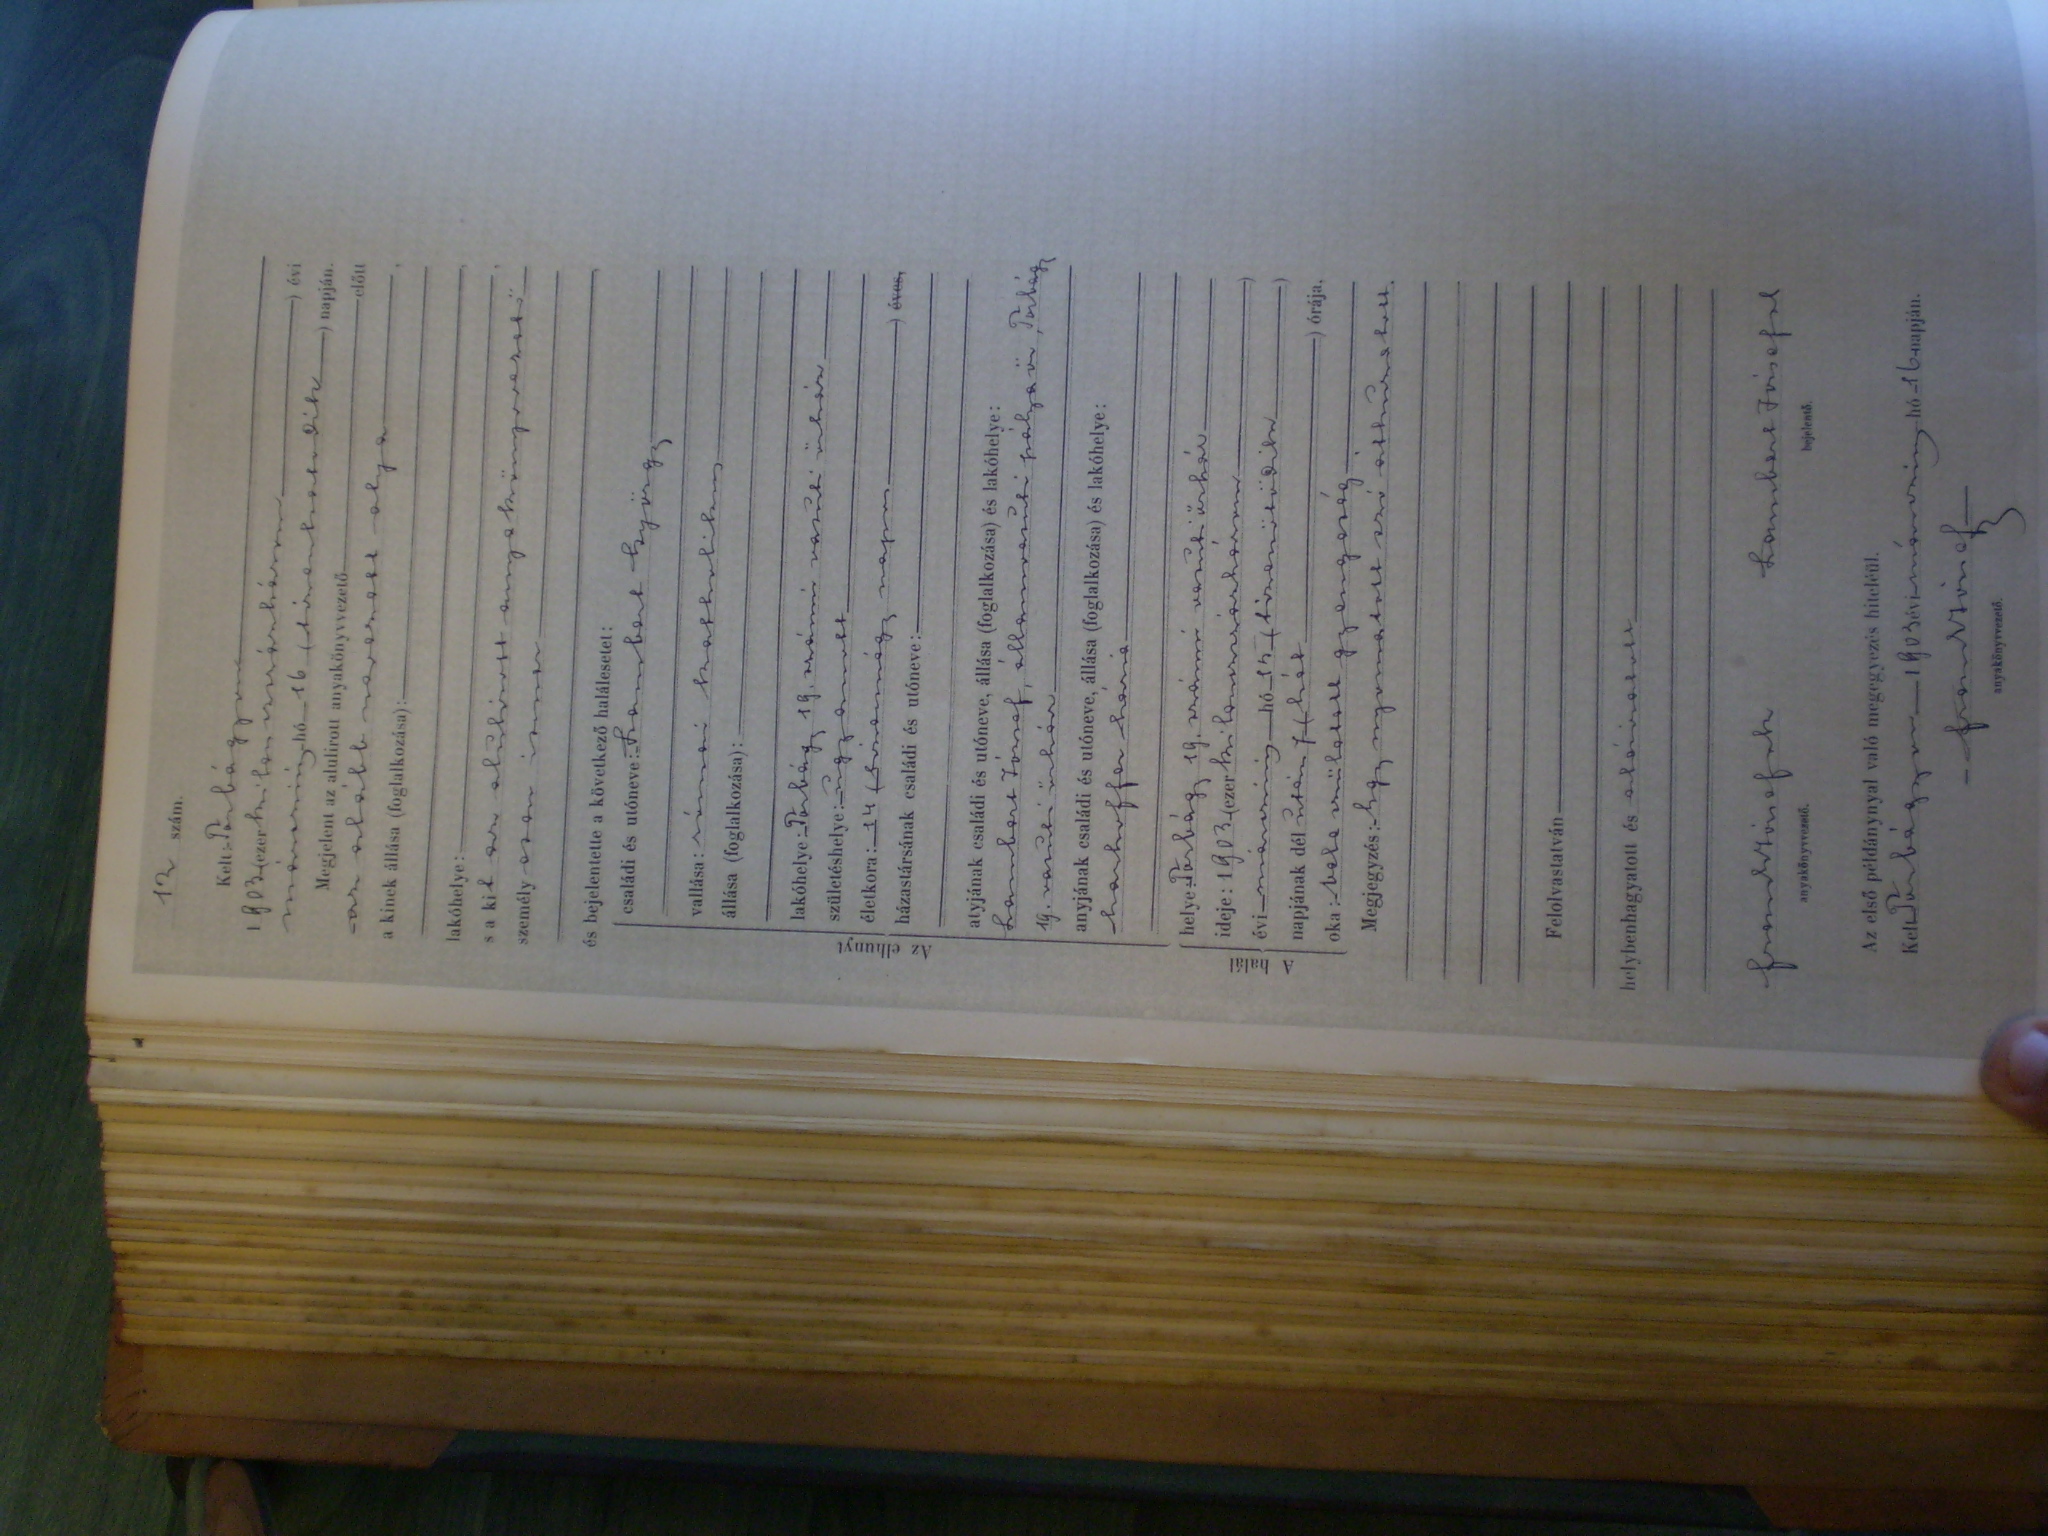 12 szám.
Kelt Torbágyon
1903 (ezerkilencszázhárom) évi
márczius hó 16 (tizenhatodik) napján.
Megjelent az alulirott anyakönyvvezető előtt
az alább nevezett atya
a kinek állása (foglalkozása):
lakóhelye:
s a kit az alulírott anyakönyvvezető
személyesen ismer
és bejelentette a következő halálesetet:
Az elhunyt
családi és utóneve: Lambert György
vallása: római katholikus
állása (foglalkozása):
lakóhelye: Torbágy 19. számú vasúti őrház
születéshelye: ugyanott
életkora: 14 (tizennégy) napos ) éves,
házastársának családi és utóneve:
atyjának családi és utóneve, állása (foglalkozása) és lakóhelye:
Lambert József, államvasúti pályaőr, Torbágy
19. vasúti őrház
anyjának családi és utóneve, állása (foglalkozása) és lakóhelye:
Mária
A halál
helye: Torbágy 19. számú vasúti őrház
ideje: 1903 (ezerkilencszázhárom)
évi márczius hó 15 (tizenötödik)
napjának dél után 7 (hét) órája,
oka: vele született gyengeség.
Megjegyzés: hogy nyomtatott szó
Felolvastatván
helybenhagyatott és aláiratott
József Lambert József
anyakönyvvezető. bejelentő.
Az első példánynyal való megegyezés hiteléül.
Kelt Torbágyon 1903 évi márczius hó 16 napján.
József
anyakönyvvezető.